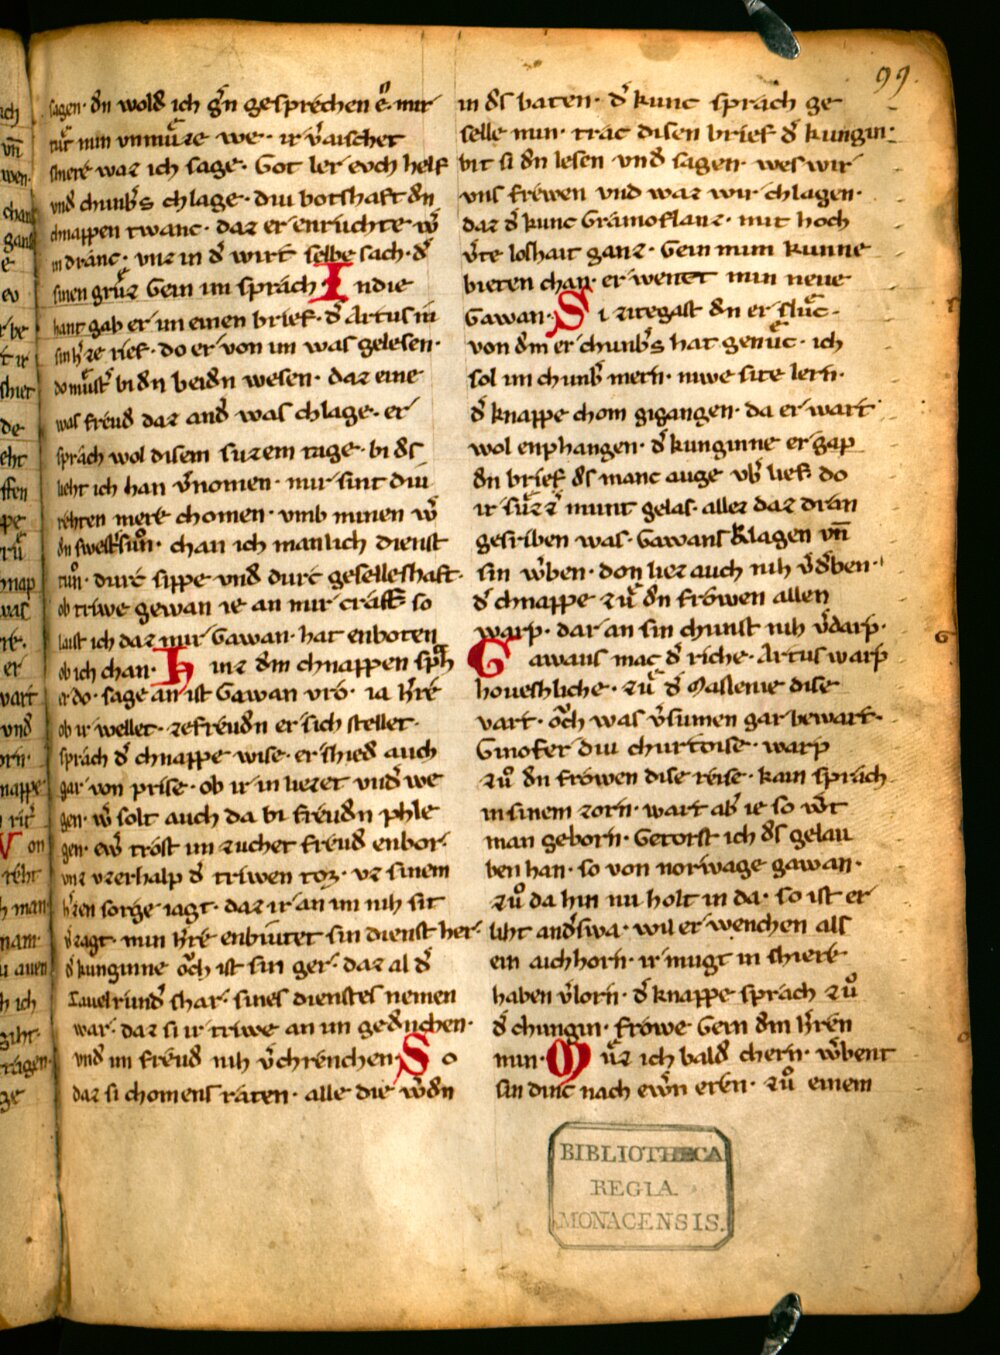 99.
sagen· dn wold ich gern gesprechen ê· mir
tuͦt min vnmuͤze we· ir v̾aischet
shiere waz ich sage· Got ler evch helf
vnd chunbs chlage· diu botshaft dn
chnappen twanc· daz er enruchte wͤ
in dranc· vnz in d̾ wirt selbe sach· d̾
sinen gruͤz Gein im sprach I ndie
hant gab er im einen brief· d̾ Artus in
sin h̾ze rief· do er von im was gelesen·
do muͤst̾ bi dn beidn wesen· daz eine
was freud daz and̾ was chlage· er
sprach wol disem suzem tage· bi ds
lieht ich han v̾nomen· mir sint diu
rehten mere chomen· vmb minen w̾
dn swest̾suͦn· chan ich manlich dienst
tuͦn· durc sippe vnd durc geselleshaft·
ob triwe gewan ie an mir craft so
laist ich daz mir Gawan· hat enboten
ob ich chan· H inz dm chnappen sp̾ch
er do· sage an ist Gawan vro· ia h̾re
ob ir wellet· zefreudn er sich stellet·
sprach d̾ chnappe wise· er shied auch
gar von prise· ob ir in liezet vnd we
gen· w̾ solt auch da bi freudn phle
gen· ew̾ trost im zuchet freud enbor·
vnz vzerhalp d̾ triwen tor· vz sinem
h̾zen sorge iagt· daz ir an im nih sit
v̾zagt· min h̾re enbiutet sin dienst her·
d̾ kunginne och ist sin ger· daz al d̾
tauelrund̾ shar· sines dienstes nemen
war· daz si ir triwe an im gednchen·
vnd im freud nih v̾chrenchen· S o
daz si chomens raten· alle die w̾dn
in ds baten· d̾ kunc sprach ge
selle min· trac disen brief d̾ kungin·
bit si dn lesen vnd sagen· wes wir
vns frewen vnd waz wir chlagen·
daz d̾ kunc Gramoflanz· mit hoch
v̾te loshait ganz· Gein mim kunne
bieten chan· er wenet min neue
Gawan· S i zitegast dn er sluͤc·
von dm er chunb̾s hat genuͤc· ich
sol im chunb̾ mern· niwe site lern·
d̾ knappe chom gigangen· da er wart
wol enphangen· d̾ kunginne er gap
dn brief ds manc auge vb̾ lief· do
ir suͤzz̾ munt gelas· allez daz dran
gesriben was· Gawans klagen vn̄
sin w̾ben· don liez auch nih v̾d̾ben·
d̾ chnappe zuͤ dn frowen allen
warp· dar an sin chunst nih v̾darp·
G awans mac d̾ riche· Artus warp
houeshliche· zuͤ d̾ Massenie dise
vart· och was v̾sumen gar bewart·
Ginofer diu churtoise· warp
zuͦ dn frowen dise reise· kain sprach
in sinem zorn· wart ab̾ ie so w̾t
man geborn· Getorst ich ds gelau
ben han· so von norwage gawan·
zuͦ da hin nu holt in da· so ist er
liht and̾swa· wil er wenchen als
ein aichhorn· ir mugt in shiere
haben v̾lorn· d̾ knappe sprach zuͦ
d̾ chungin· frowe Gein dm h̾ren
min· M uͤz ich bald chern· w̾bent
sin dinc nach ewn eren· zuͦ einem
G
BIBLIOTHECA
REGIA
MONACENSIS.